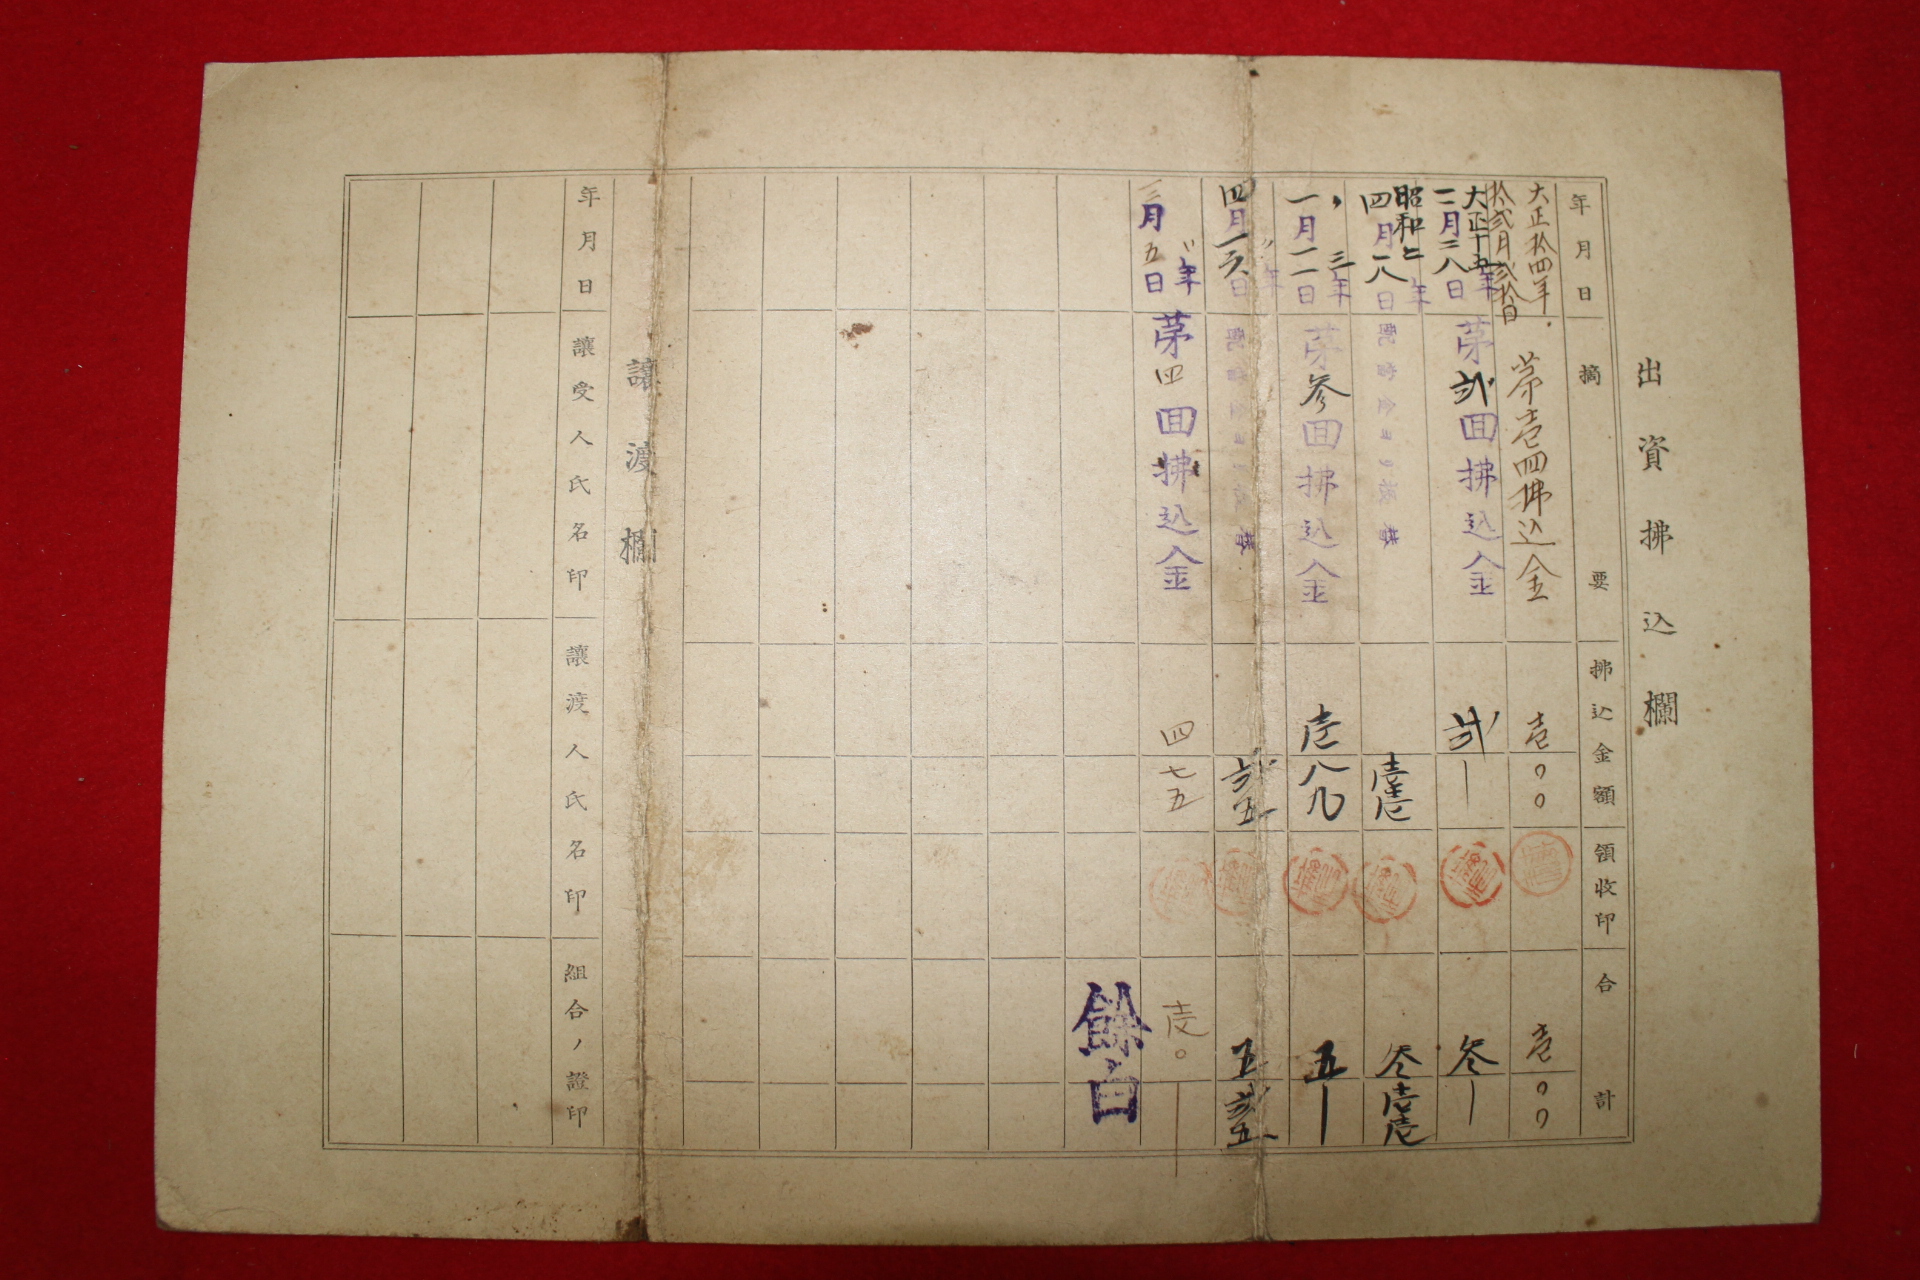 出資拂込欄
年月日
摘要
拂込金額
領收印
合計
大正拾四年
拾弐月弐拾日
第壱回拂込金
壱
〇〇
壱
〇〇
大正十五年
二月二八日
第弐回拂込金
弐
｜
参
｜
昭和二年
四月一八日
配當金ヨリ振替
壱壱
参
壱壱
〃三年
一月一一日
第参回拂込金
壱
八九
五
｜
〃年
四月一六日
配當金ヨリ振替
弐五
五
弐五
〃年
三月五日
第四回拂込金
四
七五
壱〇
｜
餘白
讓渡欄
年月日
讓受人氏名印
讓渡人氏名印
組合ノ證印